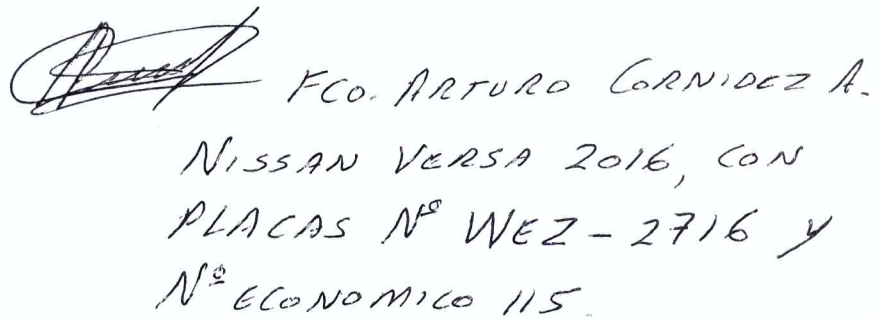 FCO. ARTURO CORNIDEZ A.
NISSAN VERSA 2016, CON
PLACAS Nº WEZ-2716 y
Nº ECONOMICO 115